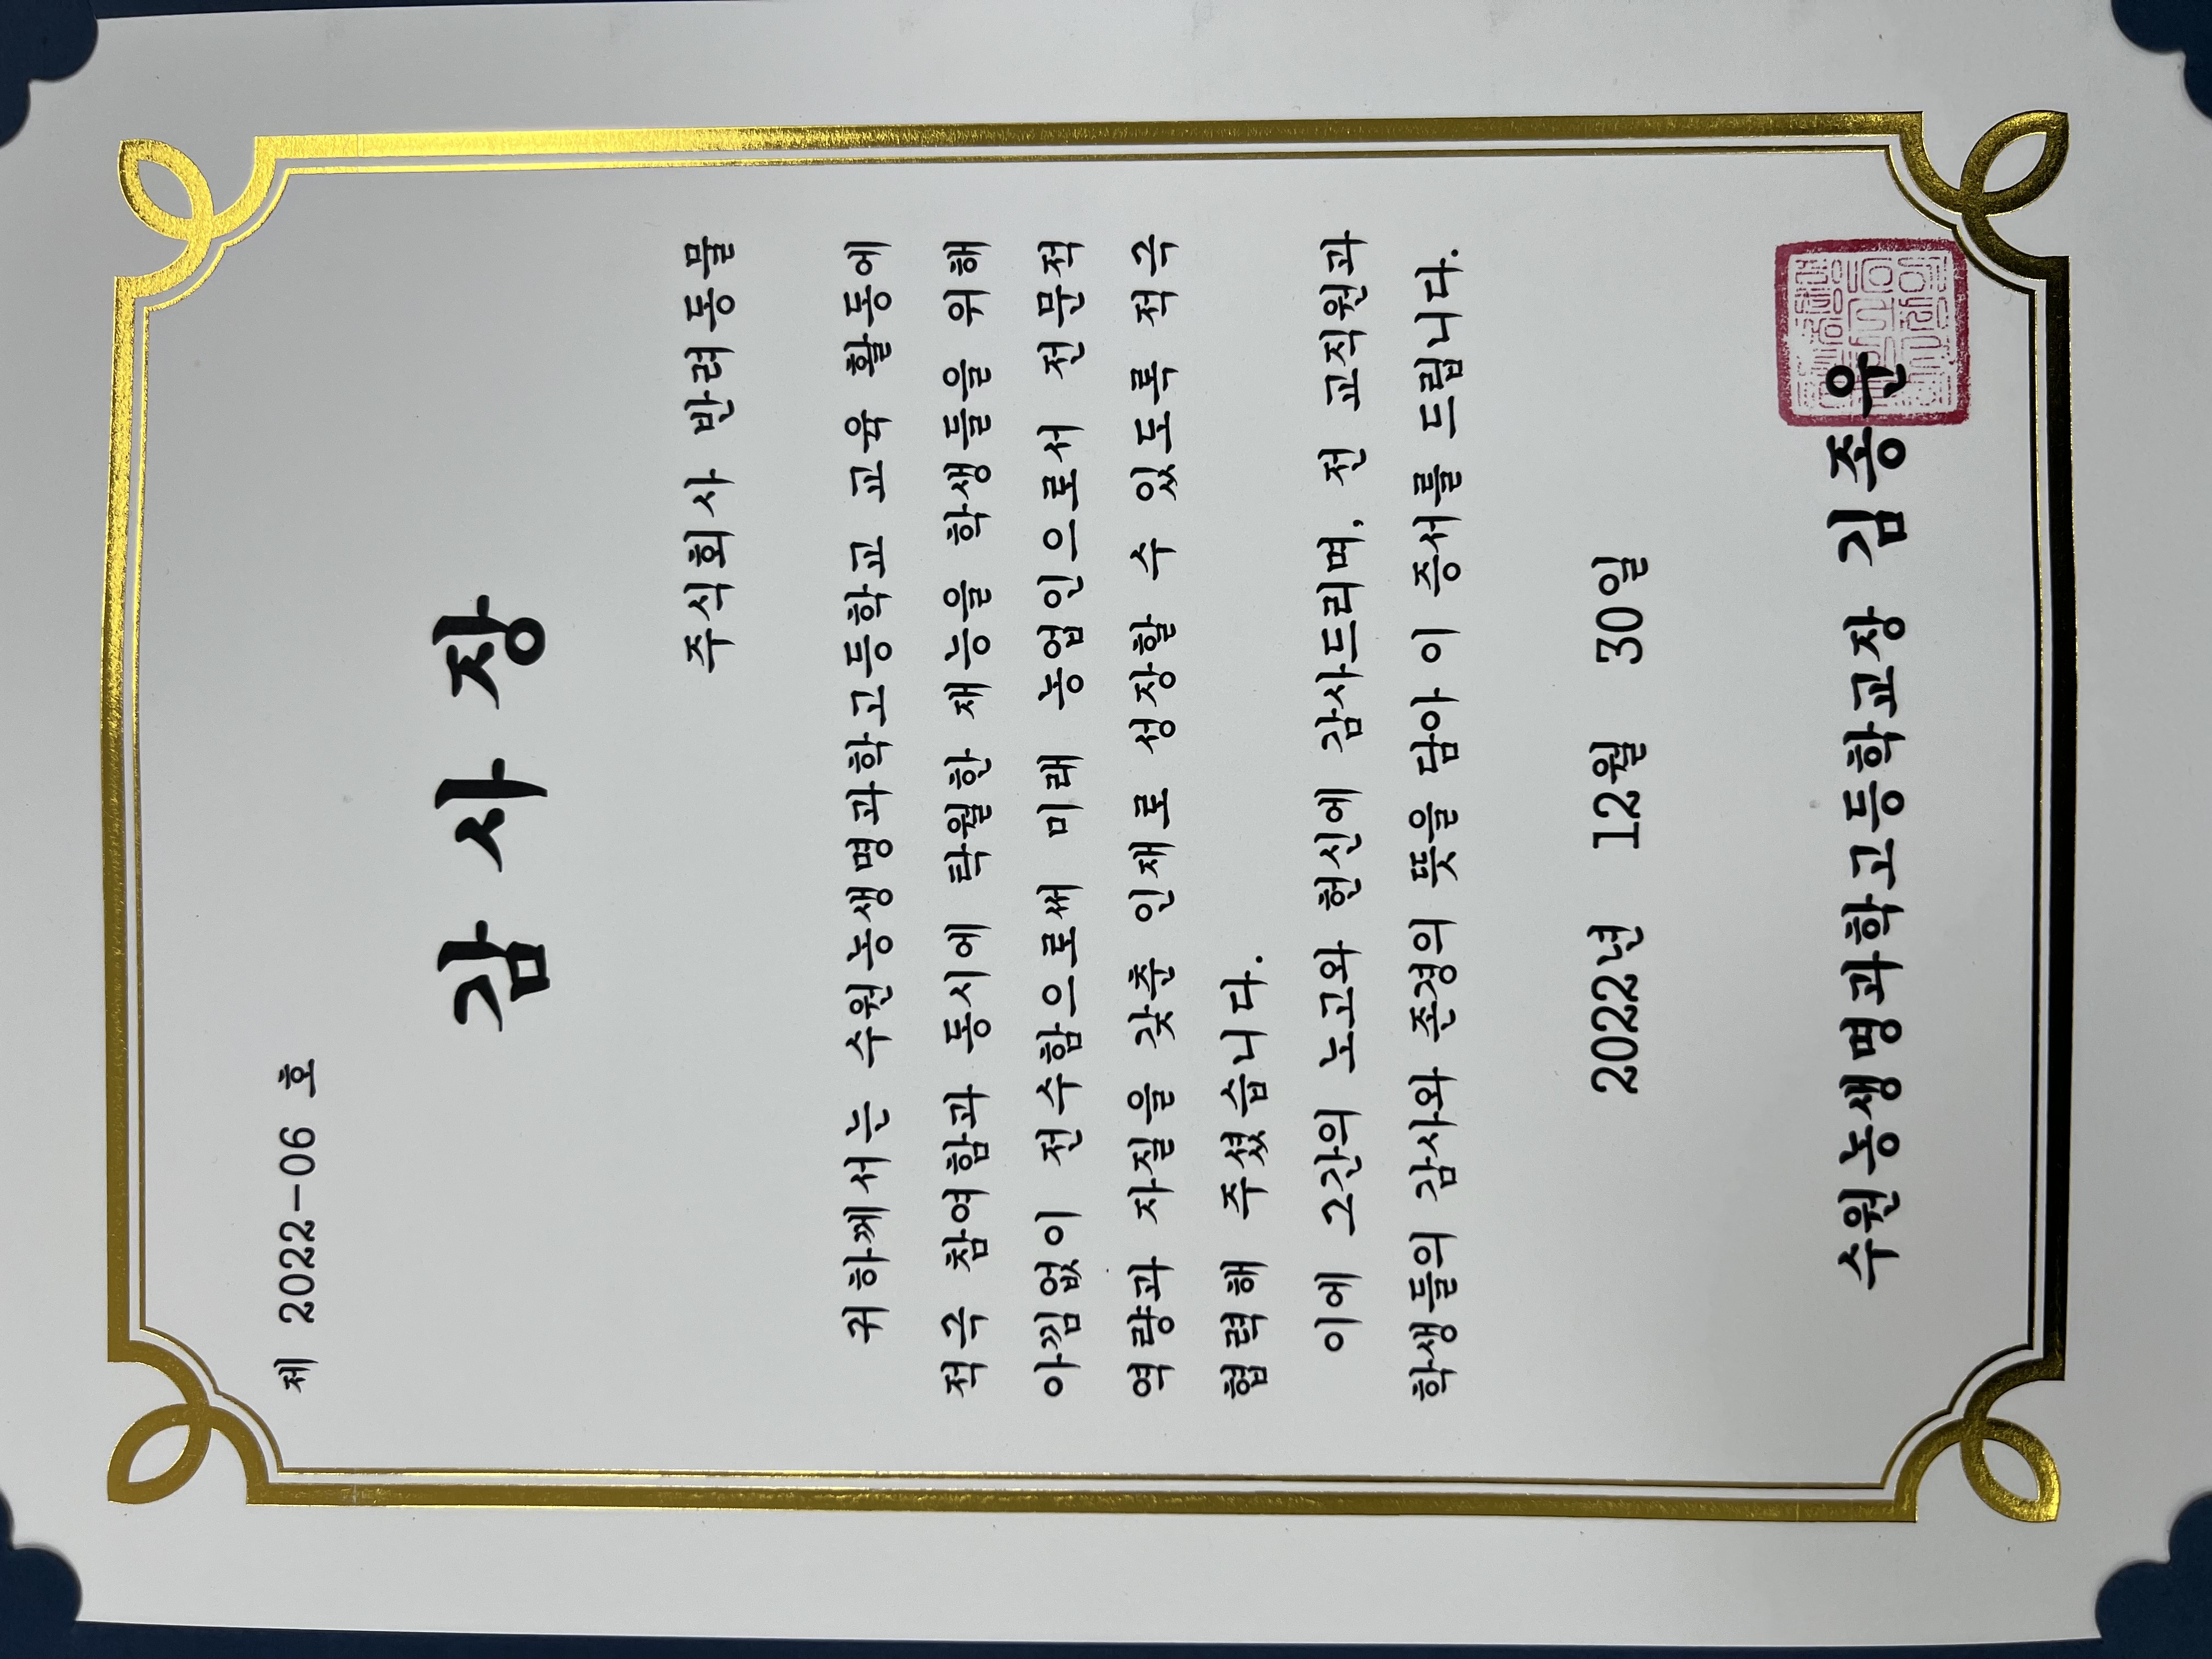 제 2022-06 호
감 사 장
주식회사 반려동물
귀하께서는 수원농생명과학고등학교 교육 활동에
적극 참여함과 동시에 탁월한 재능을 학생들을 위해
아낌없이 전수함으로써 미래 농업인으로서 전문적
역량과 자질을 갖춘 인재로 성장할 수 있도록 적극
협력해 주셨습니다.
이에 그간의 노고와 헌신에 감사드리며, 전 교직원과
학생들의 감사와 존경의 뜻을 담아 이 증서를 드립니다.
2022년 12월 30일
수원농생명과학고등학교장 김종운